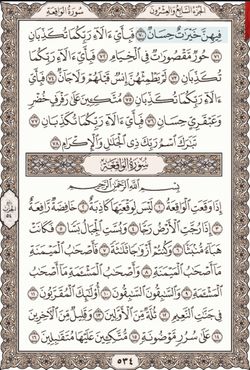 الجزء السابع والعشرون سورة الواقعة
فِيهِنَّ خَيْرَٰتٌ حِسَانٌ ٧٠ فَبِأَيِّ ءَالَآءِ رَبِّكُمَا تُكَذِّبَانِ
٧١ حُورٌ مَّقْصُورَٰتٌ فِي ٱلْخِيَامِ ٧٢ فَبِأَيِّ ءَالَآءِ رَبِّكُمَا
تُكَذِّبَانِ ٧٣ لَمْ يَطْمِثْهُنَّ إِنسٌ قَبْلَهُمْ وَلَا جَآنٌّ ٧٤ فَبِأَيِّ
ءَالَآءِ رَبِّكُمَا تُكَذِّبَانِ ٧٥ مُتَّكِـِٔينَ عَلَىٰ رَفْرَفٍ خُضْرٍ
وَعَبْقَرِيٍّ حِسَانٍ ٧٦ فَبِأَيِّ ءَالَآءِ رَبِّكُمَا تُكَذِّبَانِ ٧٧
تَبَٰرَكَ ٱسْمُ رَبِّكَ ذِي ٱلْجَلَٰلِ وَٱلْإِكْرَامِ ٧٨
سورة الواقعة
بِسْمِ ٱللَّهِ ٱلرَّحْمَٰنِ ٱلرَّحِيمِ
إِذَا وَقَعَتِ ٱلْوَاقِعَةُ ١ لَيْسَ لِوَقْعَتِهَا كَاذِبَةٌ ٢ خَافِضَةٌ رَّافِعَةٌ
٣ إِذَا رُجَّتِ ٱلْأَرْضُ رَجًّا ٤ وَبُسَّتِ ٱلْجِبَالُ بَسًّا ٥ فَكَانَتْ
هَبَآءً مُّنۢبَثًّا ٦ وَكُنتُمْ أَزْوَٰجًا ثَلَٰثَةً ٧ فَأَصْحَٰبُ ٱلْمَيْمَنَةِ
مَآ أَصْحَٰبُ ٱلْمَيْمَنَةِ ٨ وَأَصْحَٰبُ ٱلْمَشْـَٔمَةِ مَآ أَصْحَٰبُ
ٱلْمَشْـَٔمَةِ ٩ وَٱلسَّٰبِقُونَ ٱلسَّٰبِقُونَ ١٠ أُو۟لَٰٓئِكَ ٱلْمُقَرَّبُونَ ١١
فِي جَنَّٰتِ ٱلنَّعِيمِ ١٢ ثُلَّةٌ مِّنَ ٱلْأَوَّلِينَ ١٣ وَقَلِيلٌ مِّنَ ٱلْءَاخِرِينَ
١٤ عَلَىٰ سُرُرٍ مَّوْضُونَةٍ ١٥ مُّتَّكِـِٔينَ عَلَيْهَا مُتَقَٰبِلِينَ ١٦
٥٣٤